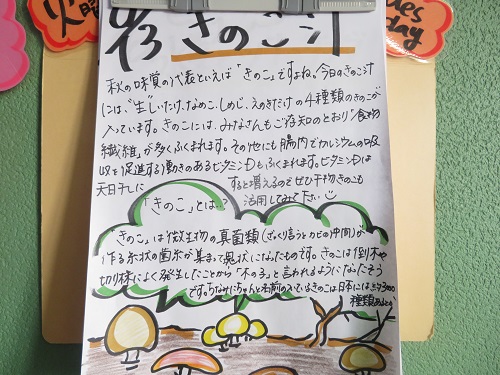 火曜
Tues
day
4/3 きのこ汁
秋の味覚の代表といえば「きのこ」ですよね。今日のきのこ汁
には、"生"しいたけ、なめこ、しめじ、えのきだけの4種類のきのこが
入っています。きのこには、みなさんもご存知のとおり「食物
繊維」が多くふくまれます。その他にも腸内でカルシウムの吸
収を促進する働きのあるビタミンDもふくまれます。ビタミンDは
天日干しに すると増えるのでぜひ干物きのこも
活用してみて下さい
「きのこ」とは?
「きのこ」は微生物の真菌類(ざっくり言うとカビの仲間)が
作る糸状の菌糸が集まって塊状になったものです。きのこは倒木や
切り株によく発生したことから「木の子」と言われるようになったそう
です。ちなみにちゃんと名前の入っているきのこは日本には約3000
種類あるとか